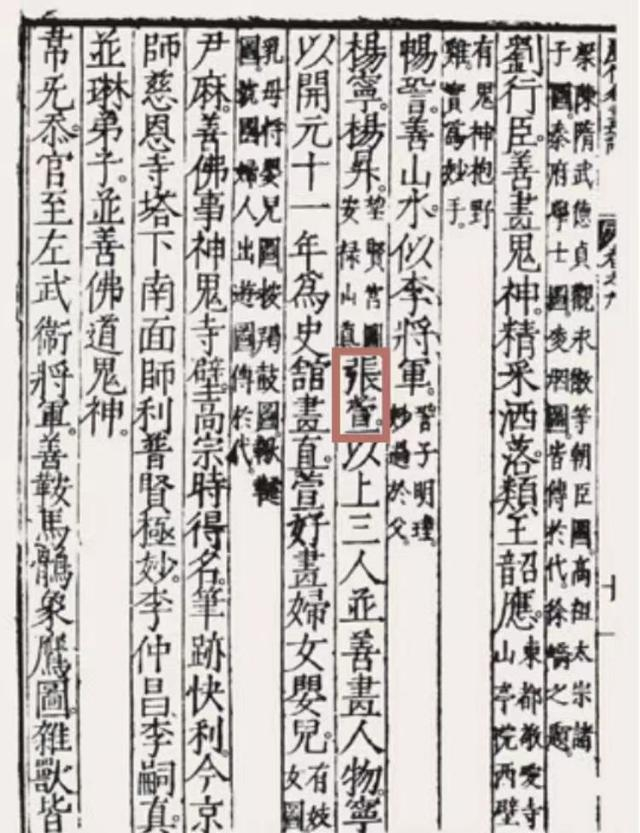 卷之九 十
梁陳隋武德貞觀永徽等朝臣圖。高祖太宗諸
子圖。秦府學士圖。凌烟圖。皆傳於代。徐嶠之題。
劉行臣善畫鬼神。精采洒落。類王韶應。東都敬愛寺山亭院西壁
有鬼神抱野
雞。實爲妙手。
暢善山水。似李將軍。子明瑾妙過於父。
楊寧。楊昇。望賢宮圖安祿山真張萱。以上三人並善畫人物。寧
以開元十一年爲史舘畫直。萱好畫婦女嬰兒。有妓女圖
乳母將嬰兒圖。按羯鼓圖。鞦韆
圖。虢國婦人出遊圖傳於代。
尹麻。善佛事神鬼寺壁。高宗時得名。筆跡快利。今京
師慈恩寺塔下南面師利普賢極妙。李仲昌。李嗣真。
並琳弟子。並善佛道鬼神。
韋无忝。官至左武衛將軍。善鞍馬鶻象鷹圖。雜獸皆